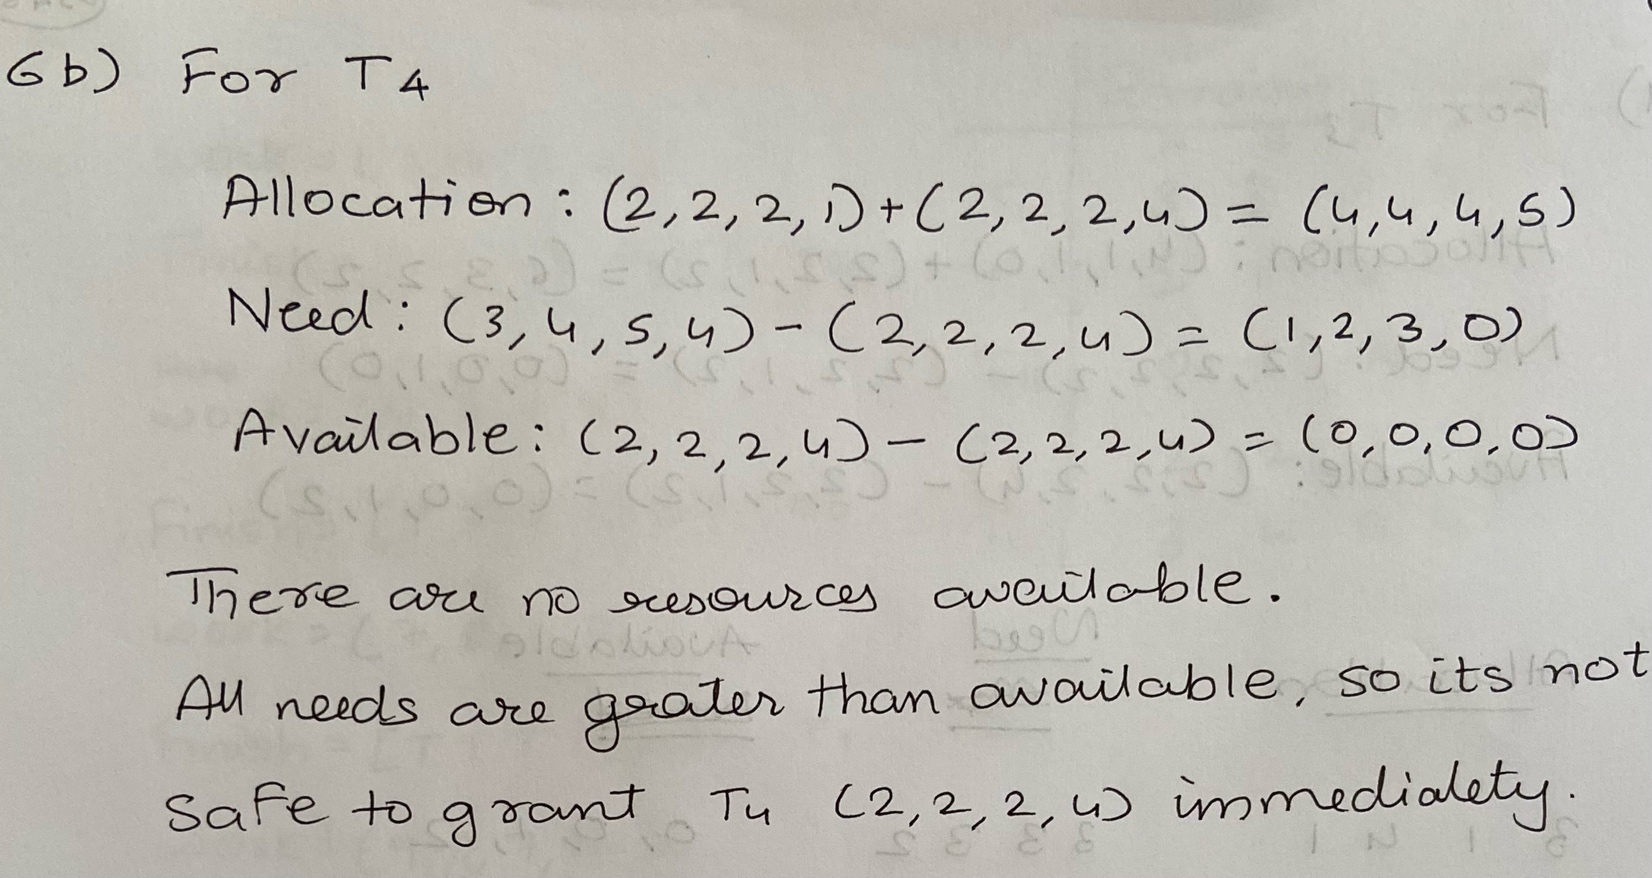 6b) For T4
Allocation: (2,2,2,1)+(2,2,2,4) = (4,4,4,5)
Need: (3,4,5,4) - (2,2,2,4) = (1,2,3,0)
Available: (2,2,2,4) - (2,2,2,4) = (0,0,0,0)
There are no resources available.
All needs are greater than available, so its not
safe to grant T4 (2,2,2,4) immediately.